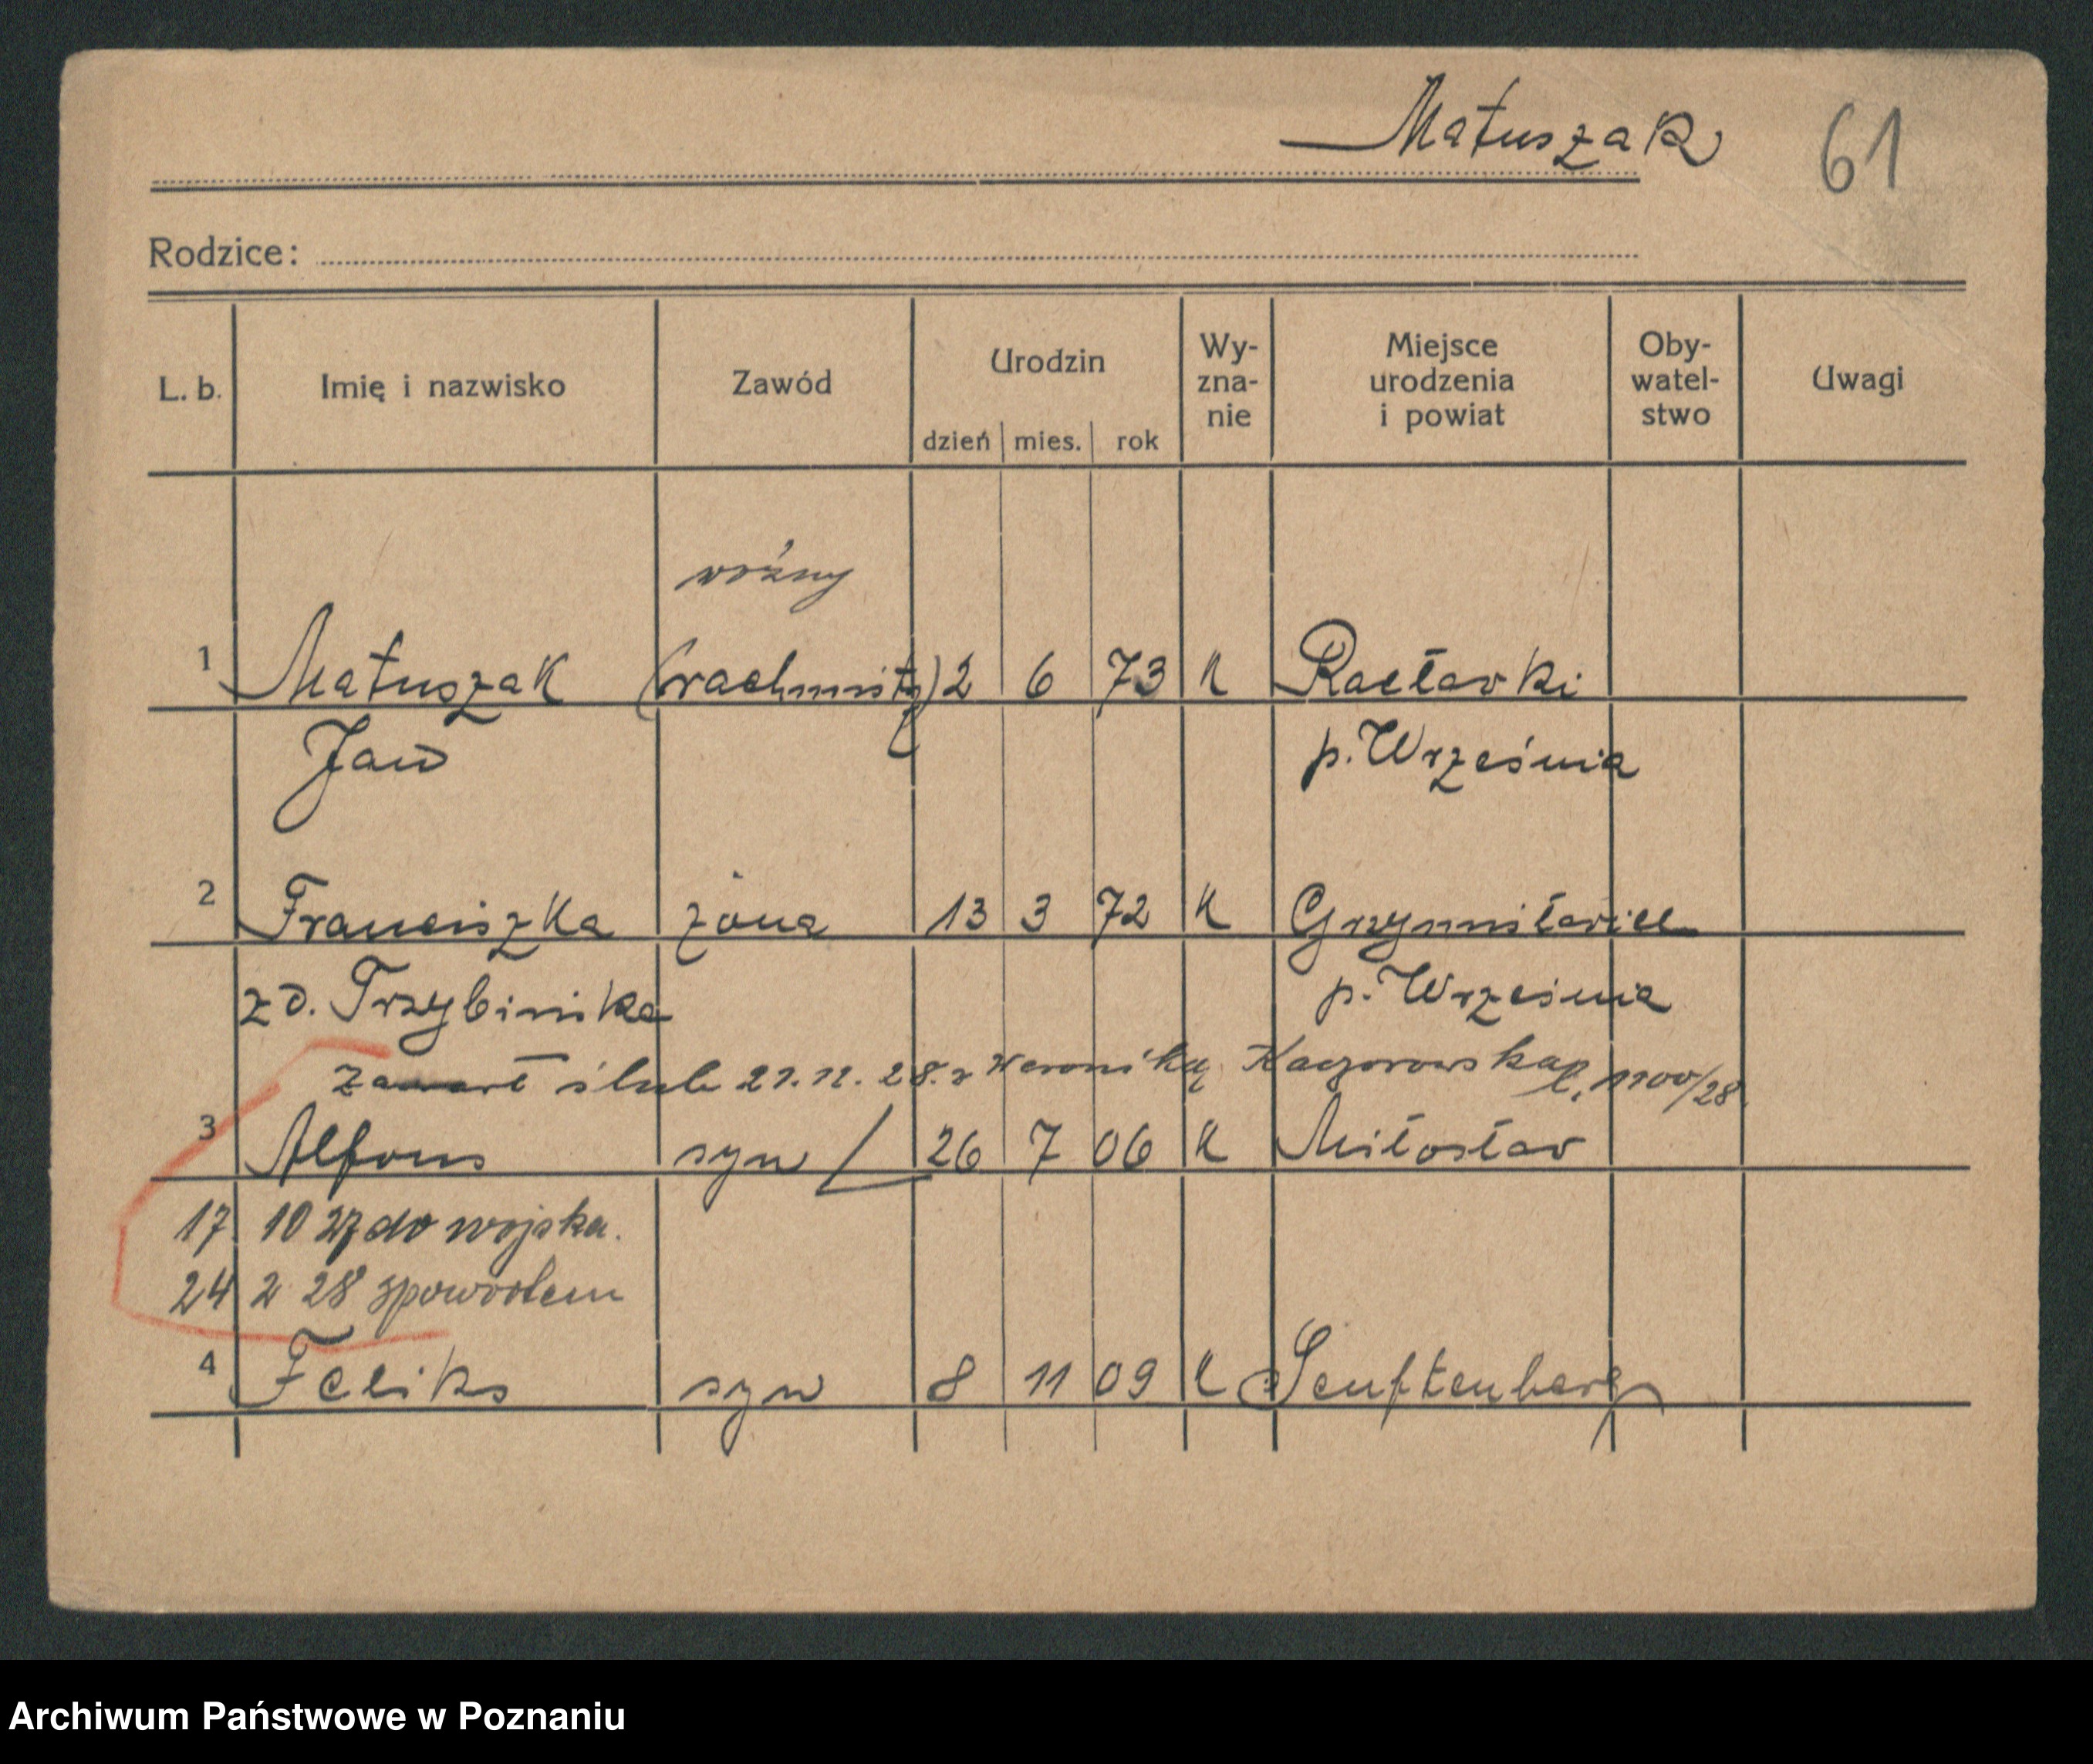 Matuszak 61
Rodzice:
L. b. Imię i nazwisko Zawód Urodzin dzień mies. rok Wy-zna-nie Miejsce urodzenia i powiat Oby-watel-stwo Uwagi
woźny
1 Matuszak 2 6 73 K Racławki
Jan p. Września
2 Franciszka żona 13 3 72 K
zd. p. Września
zawarł ślub 21.11.28. z Weroniką Kaczorowską l. 1100/28.
3 Alfons syn 26 7 06 K Miłosław
17 10 27 do wojska.
24 2 28 spowrotem
4 Feliks syn 8 11 09 K Senftenberg
Archiwum Państwowe w Poznaniu